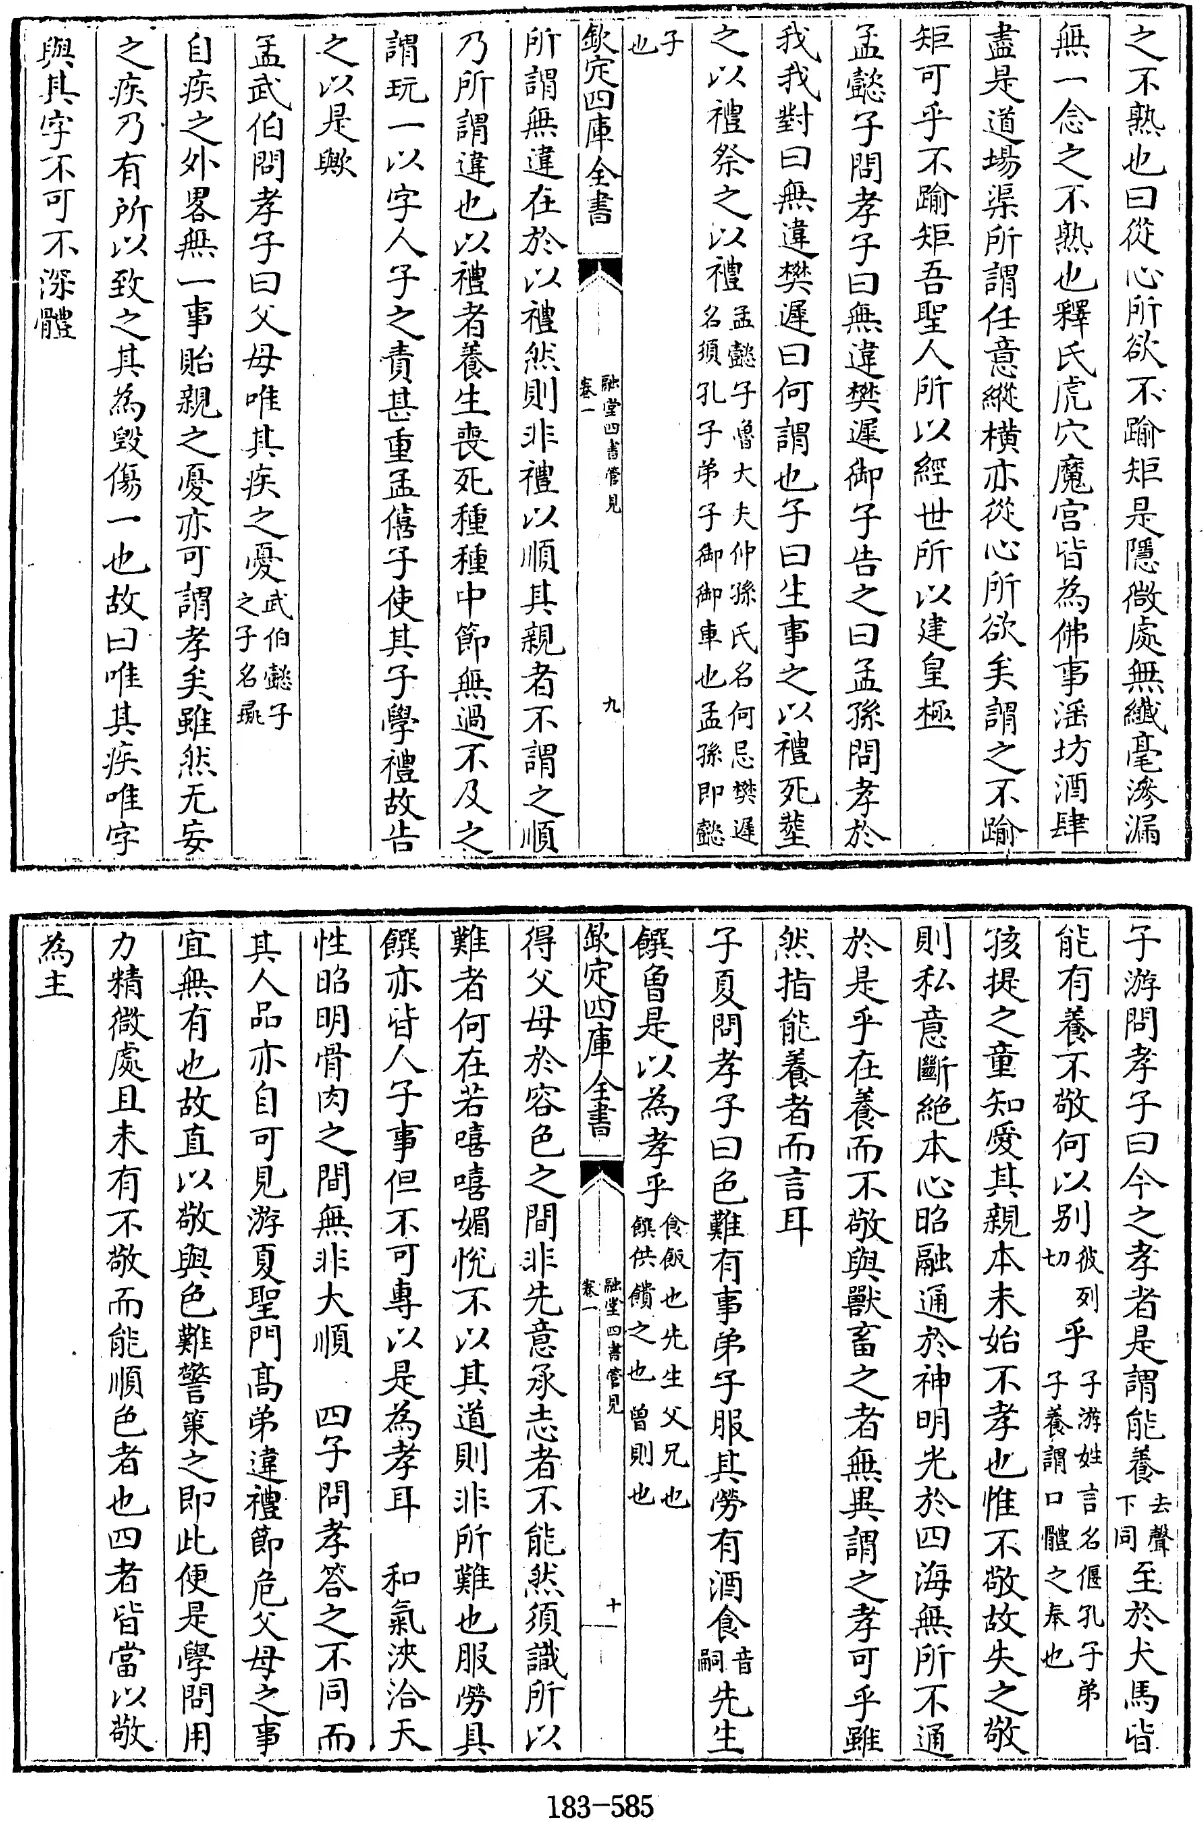 之不熟也曰從心所欲不踰矩是隱微處無纖毫滲漏
無一念之不熟也釋氏虎穴魔宮皆為佛事滛坊酒肆
盡是道場渠所謂任意縱橫亦從心所欲矣謂之不踰
矩可乎不踰矩吾聖人所以經世所以建皇極
孟懿子問孝子曰無違樊遲御子告之曰孟孫問孝於
我我對曰無違樊遲曰何謂也子曰生事之以禮死塟
之以禮祭之以禮孟懿子魯大夫仲孫氏名何忌樊遲名須孔子弟子御御車也孟孫即懿
子也
欽定四庫全書 融堂四書管見 卷一 九
所謂無違在於以禮然則非禮以順其親者不謂之順
乃所謂違也以禮者養生喪死種種中節無過不及之
謂玩一以字人子之責甚重孟僖子使其子學禮故告
之以是歟
孟武伯問孝子曰父母唯其疾之憂武伯懿子之子名彘
自疾之外畧無一事貽親之憂亦可謂孝矣雖然无妄
之疾乃有所以致之其為毀傷一也故曰唯其疾唯字
與其字不可不深體
子游問孝子曰今之孝者是謂能養去聲下同至於犬馬皆
能有養不敬何以別彼列切乎子游姓言名偃孔子弟子養謂口體之奉也
孩提之童知愛其親本未始不孝也惟不敬故失之敬
則私意斷絶本心昭融通於神明光於四海無所不通
於是乎在養而不敬與獸畜之者無異謂之孝可乎雖
然指能養者而言耳
子夏問孝子曰色難有事弟子服其勞有酒食音嗣先生
饌曾是以為孝乎食飯也先生父兄也饌供饋之也曾則也
欽定四庫全書 融堂四書管見 卷一 十
得父母於容色之間非先意承志者不能然須識所以
難者何在若嘻嘻媚悅不以其道則非所難也服勞具
饌亦皆人子事但不可專以是為孝耳 和氣浹洽天
性昭明骨肉之間無非大順 四子問孝答之不同而
其人品亦自可見游夏聖門高弟違禮節危父母之事
宜無有也故直以敬與色難警策之即此便是學問用
力精微處且未有不敬而能順色者也四者皆當以敬
為主
183-585